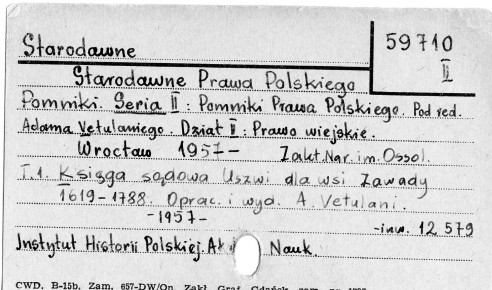 Starodawne
59710
II
Starodawne Prawa Polskiego
Pomniki. Seria II : Pomniki Prawa Polskiego. Pod red.
Adama Vetulaniego. Dział II : Prawo wiejskie.
Wrocław 1957- Zakł.Nar.im.Ossol.
T.1. Księga sądowa Uszwi dla wsi Zawady
1619-1788. Oprac. i wyd. A. Vetulani.
-1957-
-inw. 12 579
Instytut Historii Polskiej. Nauk
CWD, B-15b, Zam. 657-DW/On. Zakł. Graf. Gdańsk, zam.